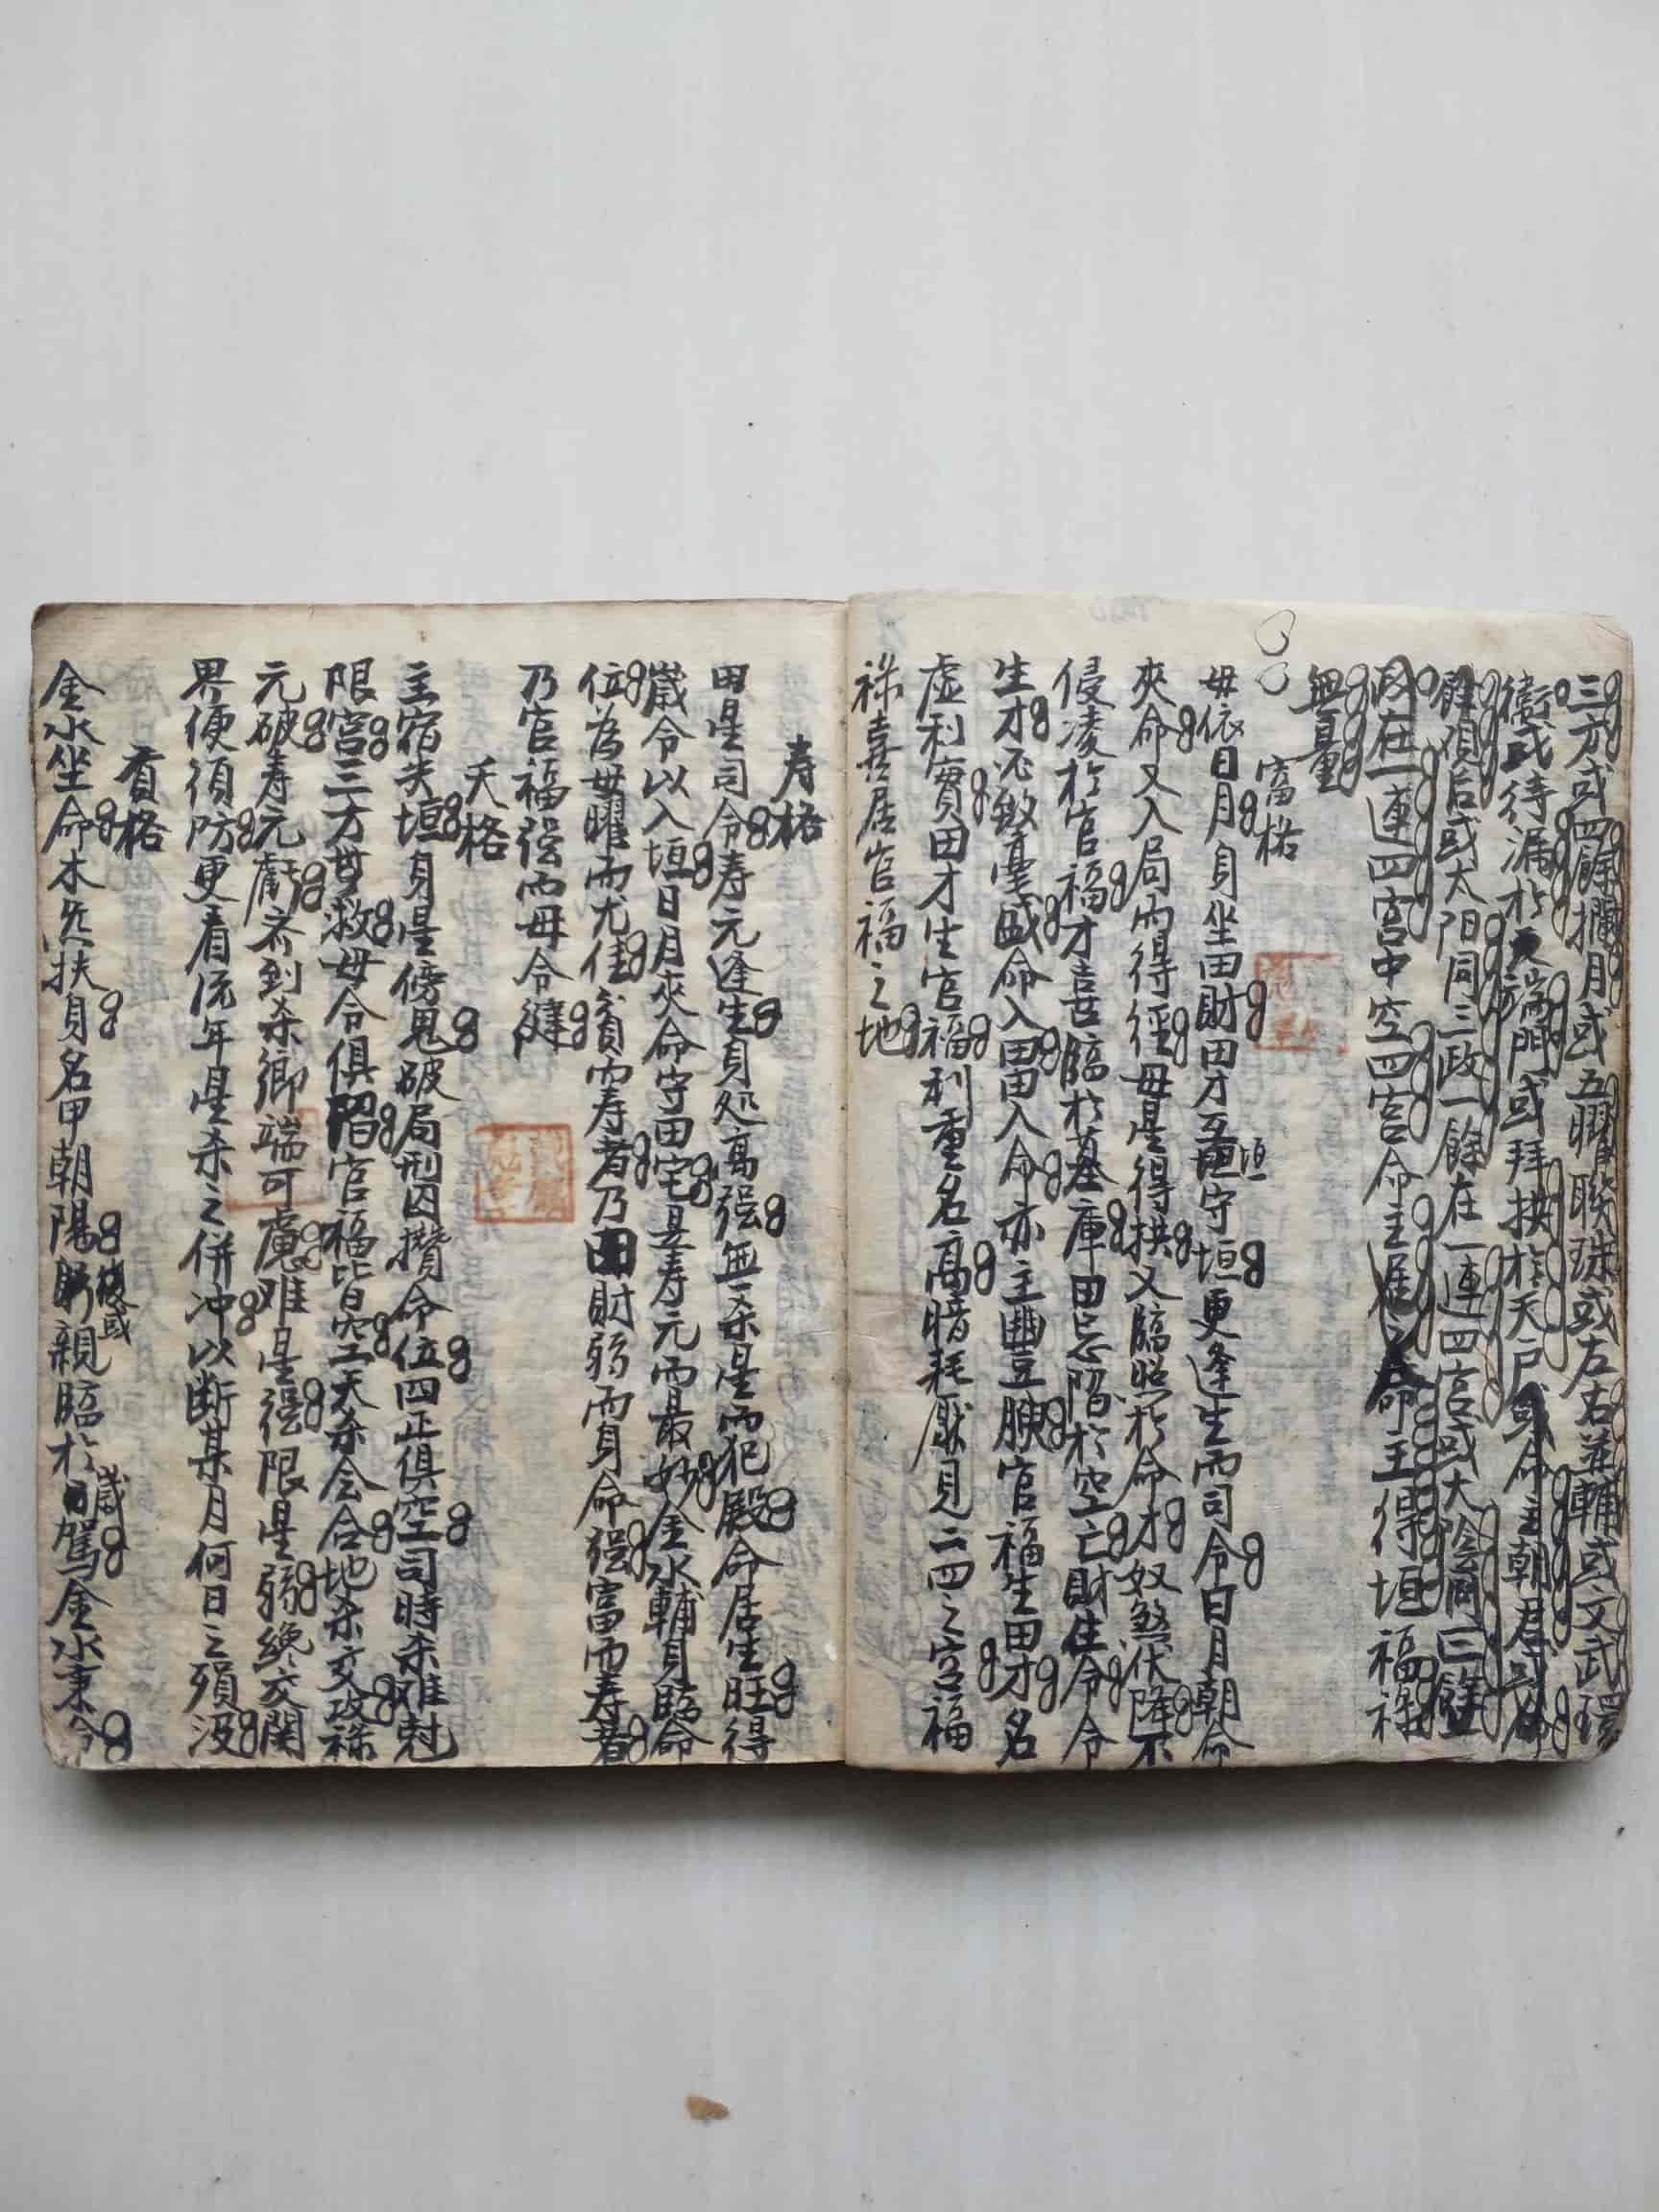 三方或四餘攔月或五曜聯珠或左右並輔或文武環
衛或待漏於端門或拜拱於天戶或命主朝君或
餘負后或太阳同三政一餘在一連四宮或大陰同三餘
在一連四宮中空四宮命主命主得垣福祿
無量
富格
毋依日月身坐田財田才互垣守垣更逢生而司令日月朝命
夾命又入局而得徑毋星得拱又臨照於命才奴煞伏降不
侵凌於官福才喜臨於墓庫田忌陷於空亡財住令令
生才必致豐盛命入田田入命亦主豊腴官福生田才名
虛利實田才生官福利重名高暗耗厭見二四之宮福
祿喜居官福之地
寿格
田星司令寿元逢生身処高强無杀星而犯殿命居生旺得
歲令以入垣日月夾命守田宅是寿元而最妙金水輔身臨命
位為毋曜而尤佳貧而寿者乃田財弱而身命强富而寿者
乃官福强而毋令健
夭格
主宿失垣身星傍鬼破局刑囚攢命位四正俱空司時杀难尅
限宮三方無救毋令俱陷官福皆空天杀会合地杀交攻祿
元破寿元虧若到杀鄉端可慮难星强限星弱纔交関
界便須防更看流年星杀之併冲以断某月何日之殞没
貢格
金水坐命木炁扶身名甲朝陽躬親臨於歲駕金水秉令